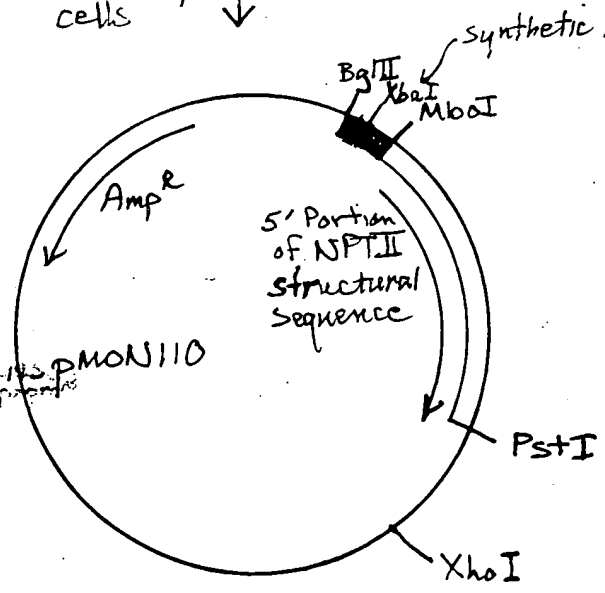 cells
synthetic
BglII
XbaI
MboI
Amp^R
5' Portion
of NPTII
structural
sequence
pMON110
PstI
XhoI